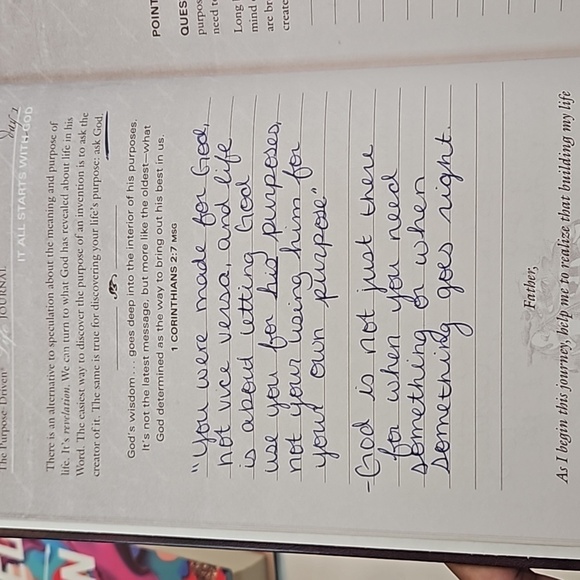 The Purpose Driven Life JOURNAL
Day 1
IT ALL STARTS WITH GOD
There is an alternative to speculation about the meaning and purpose of
life. It's revelation. We can turn to what God has revealed about life in his
Word. The easiest way to discover the purpose of an invention is to ask the
creator of it. The same is true for discovering your life's purpose: ask God.
God's wisdom . . . goes deep into the interior of his purposes.
It's not the latest message, but more like the oldest—what
God determined as the way to bring out his best in us.
1 CORINTHIANS 2:7 MSG
"You were made for God,
not vice versa, and life
is about letting God
use you for his purposes,
not your using him for
your own purpose"
-God is not just there
for when you need
something or when
something goes right.
Father,
As I begin this journey, help me to realize that building my life
POINT
QUES
purpos
need to
Long
mind
are br
create